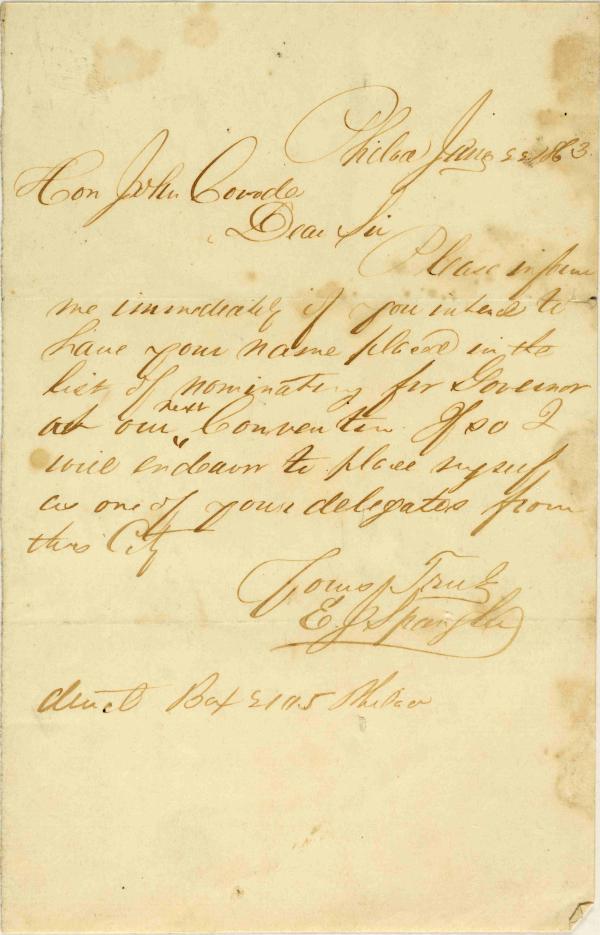 Philad Jany 22 1863
Hon John Covode
Dear Sir
Please inform
me immediately if you intend to
have your name placed in the
list of nominating for Governor
at our next Convention. If so I
will endeavor to place myself
as one of your delegates from
this City
Yours Truly
E. J. Spangler
direct Box 2105 Philad